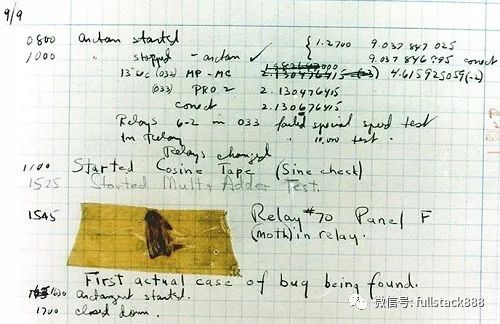 9/9
0800 started
1000 " stopped - 1.2700 9.037 847 025
9.037 846 995
13" (032) MP-MC 4.615925059(-2)
(033) PRO 2 2.130476415
2.130676415
Relays 6-2 in 033 failed special speed test
In Relay " 10,000 test.
Relays changed
1100 Started Cosine Tape (Sine check)
1525 Started Mult + Adder Test.
1545 Relay #70 Panel F
(moth) in relay.
First actual case of bug being found.
started.
1700 closed down.
微信号: fullstack888